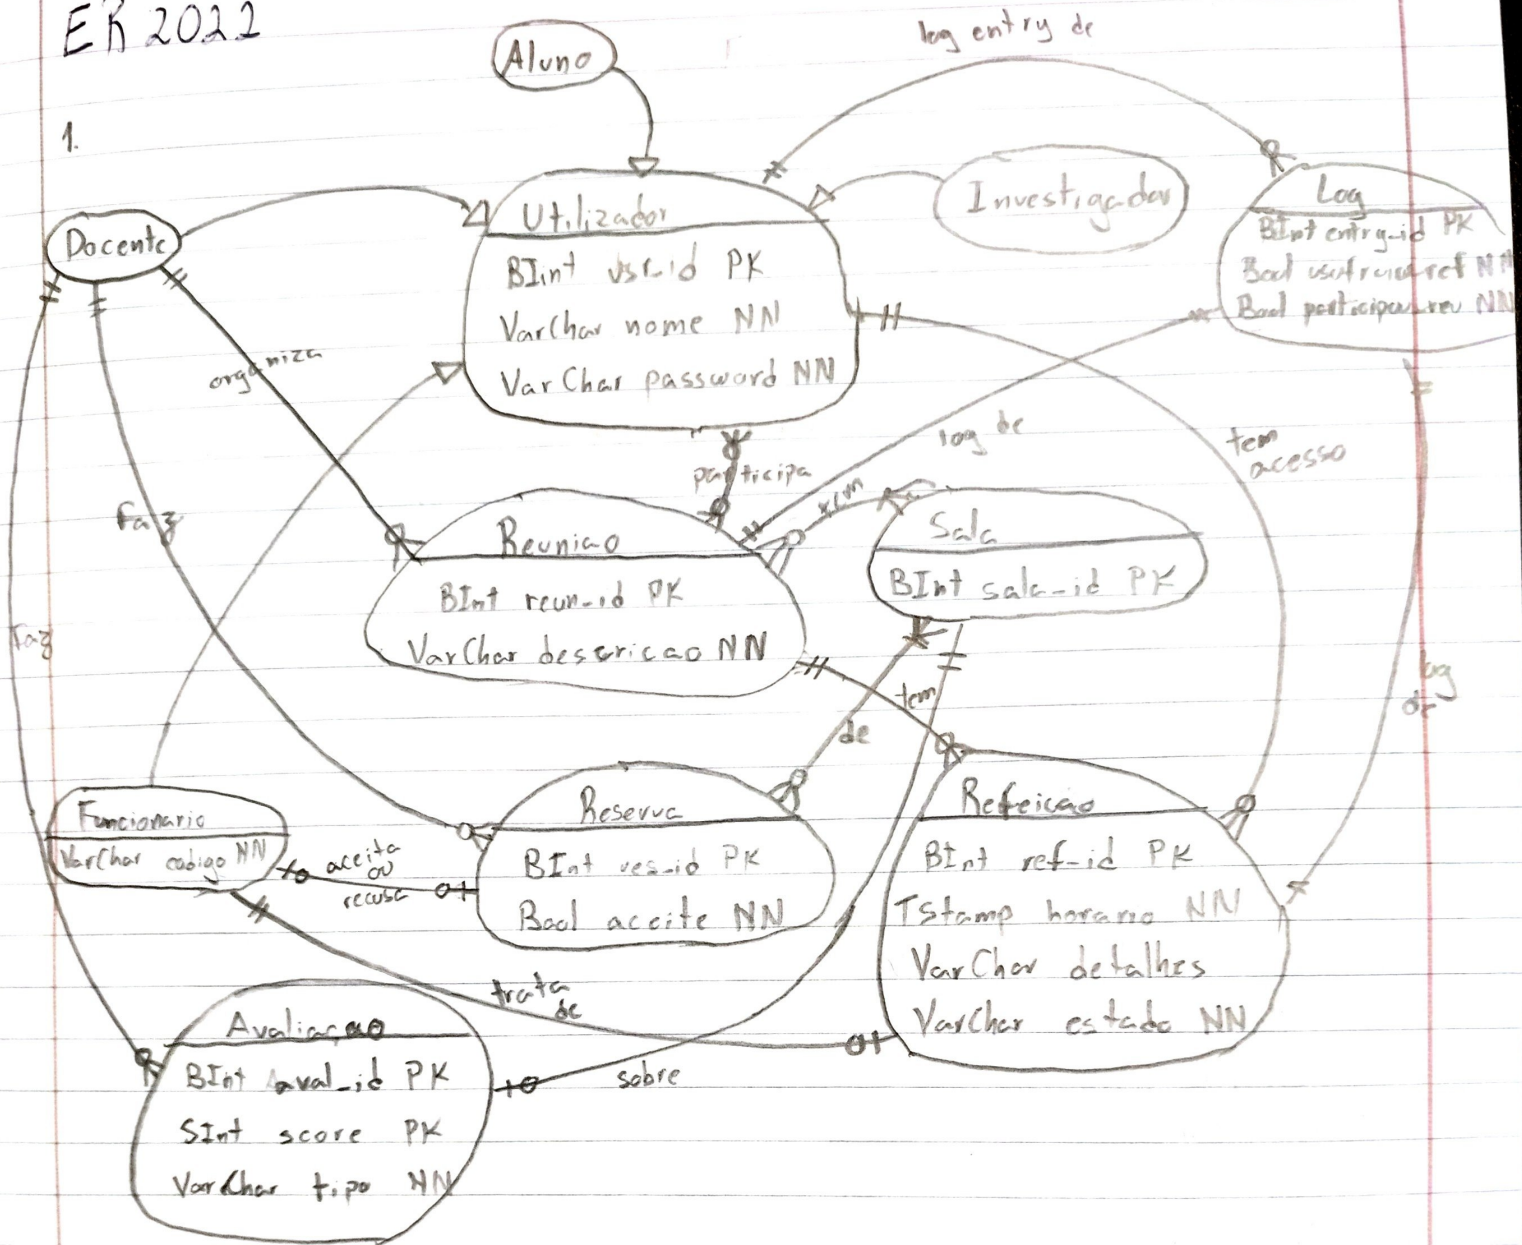 ER 2022
1.
Aluno
log entry de
Docente
Utilizador
BInt usr_id PK
VarChar nome NN
VarChar password NN
Investigador
Log
BInt entry_id PK
Bool NN
Bool participou_reu NN
organiza
participa
log de
tem acesso
faz
faz
Reuniao
BInt reun_id PK
VarChar descricao NN
Sala
BInt sala_id PK
tem
de
log de
Funcionario
VarChar codigo NN
aceita
ou
recusa
Reserva
BInt res_id PK
Bool aceite NN
Refeicao
BInt ref_id PK
TStamp horario NN
VarChar detalhes
VarChar estado NN
trata
de
sobre
Avaliaçao
BInt aval_id PK
SInt score PK
VarChar tipo NN